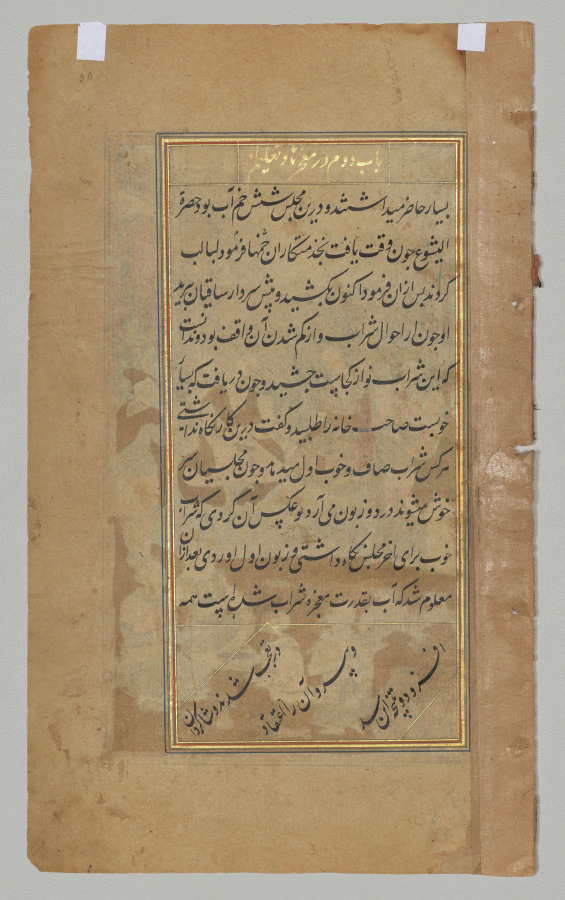 باب دوم در معجزها و تعلیم او
بسیار حاضر میداشتند و درین مجلس شش خم آب بود حضرة
الیشوع چون وقت یافت بخدمتکاران خمها فرمود لبالب
کردند پس ازان فرمود اکنون بکشید و پیش سردار ساقیان برید
او چون از احوال شراب و از کم شدن آن واقف بود و ندانست
که این شراب نو از کجاست چشید و چون دریافت که بسیار
خوبست صاحب خانه را طلبید و گفت درین کار نگاه نداشتی
هر کس شراب صاف و خوب اول میدهد و چون مجلسیان سر
خوش میشوند درد و زبون می آرد تو عکس آن کردی که شراب
خوب برای آخر مجلس نگاه داشتی و زبون اول آوردی بعد ازان
معلوم شد که آب بقدرت معجزه شراب شده است همه
در تعجب شدند و شاگردان
وی بر وی آن را اعتقاد
افزود و پخته تر از